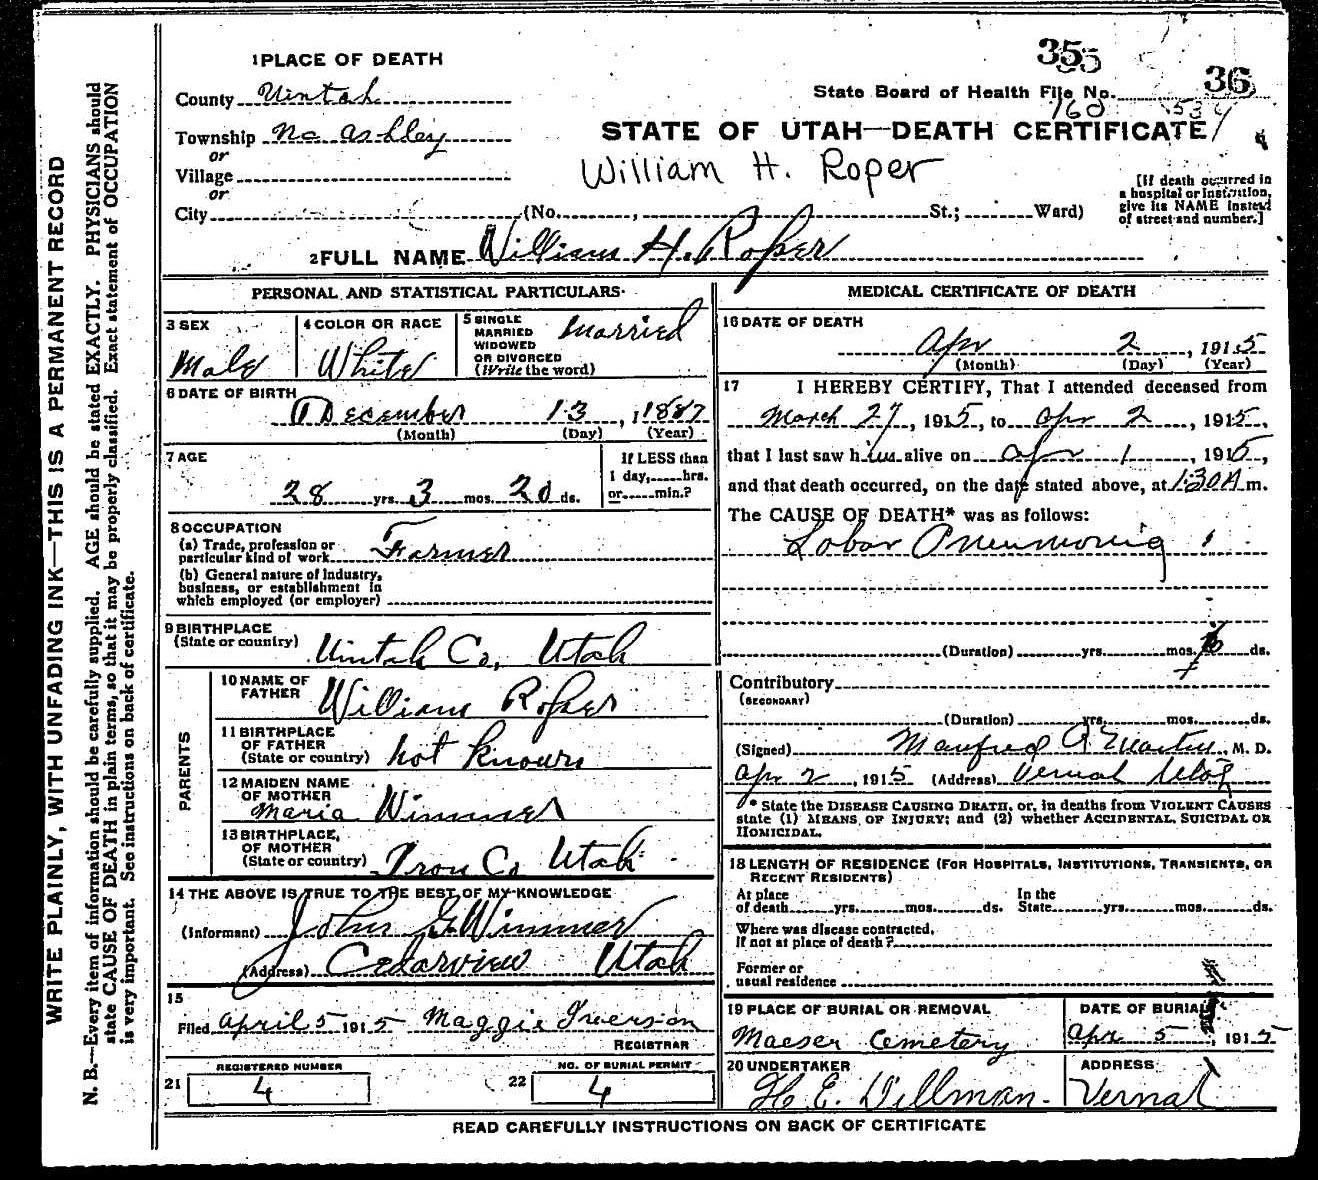 355
36
1 PLACE OF DEATH
County Uintah
State Board of Health File No.
160 534
Township No Ashley
STATE OF UTAH—DEATH CERTIFICATE
or
Village
William H. Roper
or
City (No. , St.; Ward)
[If death occurred in
a hospital or institution,
give its NAME instead
of street and number.]
2 FULL NAME William H. Roper
PERSONAL AND STATISTICAL PARTICULARS
3 SEX
Male
4 COLOR OR RACE
White
5 SINGLE
MARRIED
WIDOWED
OR DIVORCED
(Write the word)
Married
6 DATE OF BIRTH
December 13, 1887
(Month) (Day) (Year)
7 AGE
28 yrs. 3 mos. 20 ds.
If LESS than
1 day, hrs.
or min.?
8 OCCUPATION
(a) Trade, profession or
particular kind of work Farmer
(b) General nature of industry,
business, or establishment in
which employed (or employer)
9 BIRTHPLACE
(State or country) Uintah Co, Utah
PARENTS
10 NAME OF
FATHER William Roper
11 BIRTHPLACE
OF FATHER
(State or country) not known
12 MAIDEN NAME
OF MOTHER
Maria Wimmer
13 BIRTHPLACE,
OF MOTHER
(State or country) Iron Co Utah
14 THE ABOVE IS TRUE TO THE BEST OF MY KNOWLEDGE
(Informant) John G Wimmer
(Address) Cedarview Utah
15
Filed April 5 1915 Maggie Iverson
REGISTRAR
21 REGISTERED NUMBER
4
22 NO. OF BURIAL PERMIT
4
MEDICAL CERTIFICATE OF DEATH
16 DATE OF DEATH
Apr 2, 1915
(Month) (Day) (Year)
17 I HEREBY CERTIFY, That I attended deceased from
March 27, 1915, to Apr 2, 1915,
that I last saw him alive on Apr 1, 1915,
and that death occurred, on the date stated above, at 1:30A m.
The CAUSE OF DEATH* was as follows:
Lobar Pneumonia
(Duration) yrs. mos. 6 ds.
Contributory
(SECONDARY)
(Duration) yrs. mos. ds.
(Signed) Manfred R Martin, M. D.
Apr 2, 1915 (Address) Vernal Utah
* State the DISEASE CAUSING DEATH, or, in deaths from VIOLENT CAUSES
state (1) MEANS OF INJURY; and (2) whether ACCIDENTAL, SUICIDAL OR
HOMICIDAL.
18 LENGTH OF RESIDENCE (FOR HOSPITALS, INSTITUTIONS, TRANSIENTS, OR
RECENT RESIDENTS)
At place
of death yrs. mos. ds.
In the
State yrs. mos. ds.
Where was disease contracted,
If not at place of death?
Former or
usual residence
19 PLACE OF BURIAL OR REMOVAL
Maeser Cemetery
DATE OF BURIAL
Apr 5, 1915
20 UNDERTAKER
H E Dillman.
ADDRESS
Vernal
READ CAREFULLY INSTRUCTIONS ON BACK OF CERTIFICATE
WRITE PLAINLY, WITH UNFADING INK—THIS IS A PERMANENT RECORD
N. B.—Every item of information should be carefully supplied. AGE should be stated EXACTLY. PHYSICIANS should
state CAUSE OF DEATH in plain terms, so that it may be properly classified. Exact statement of OCCUPATION
is very important. See instructions on back of certificate.